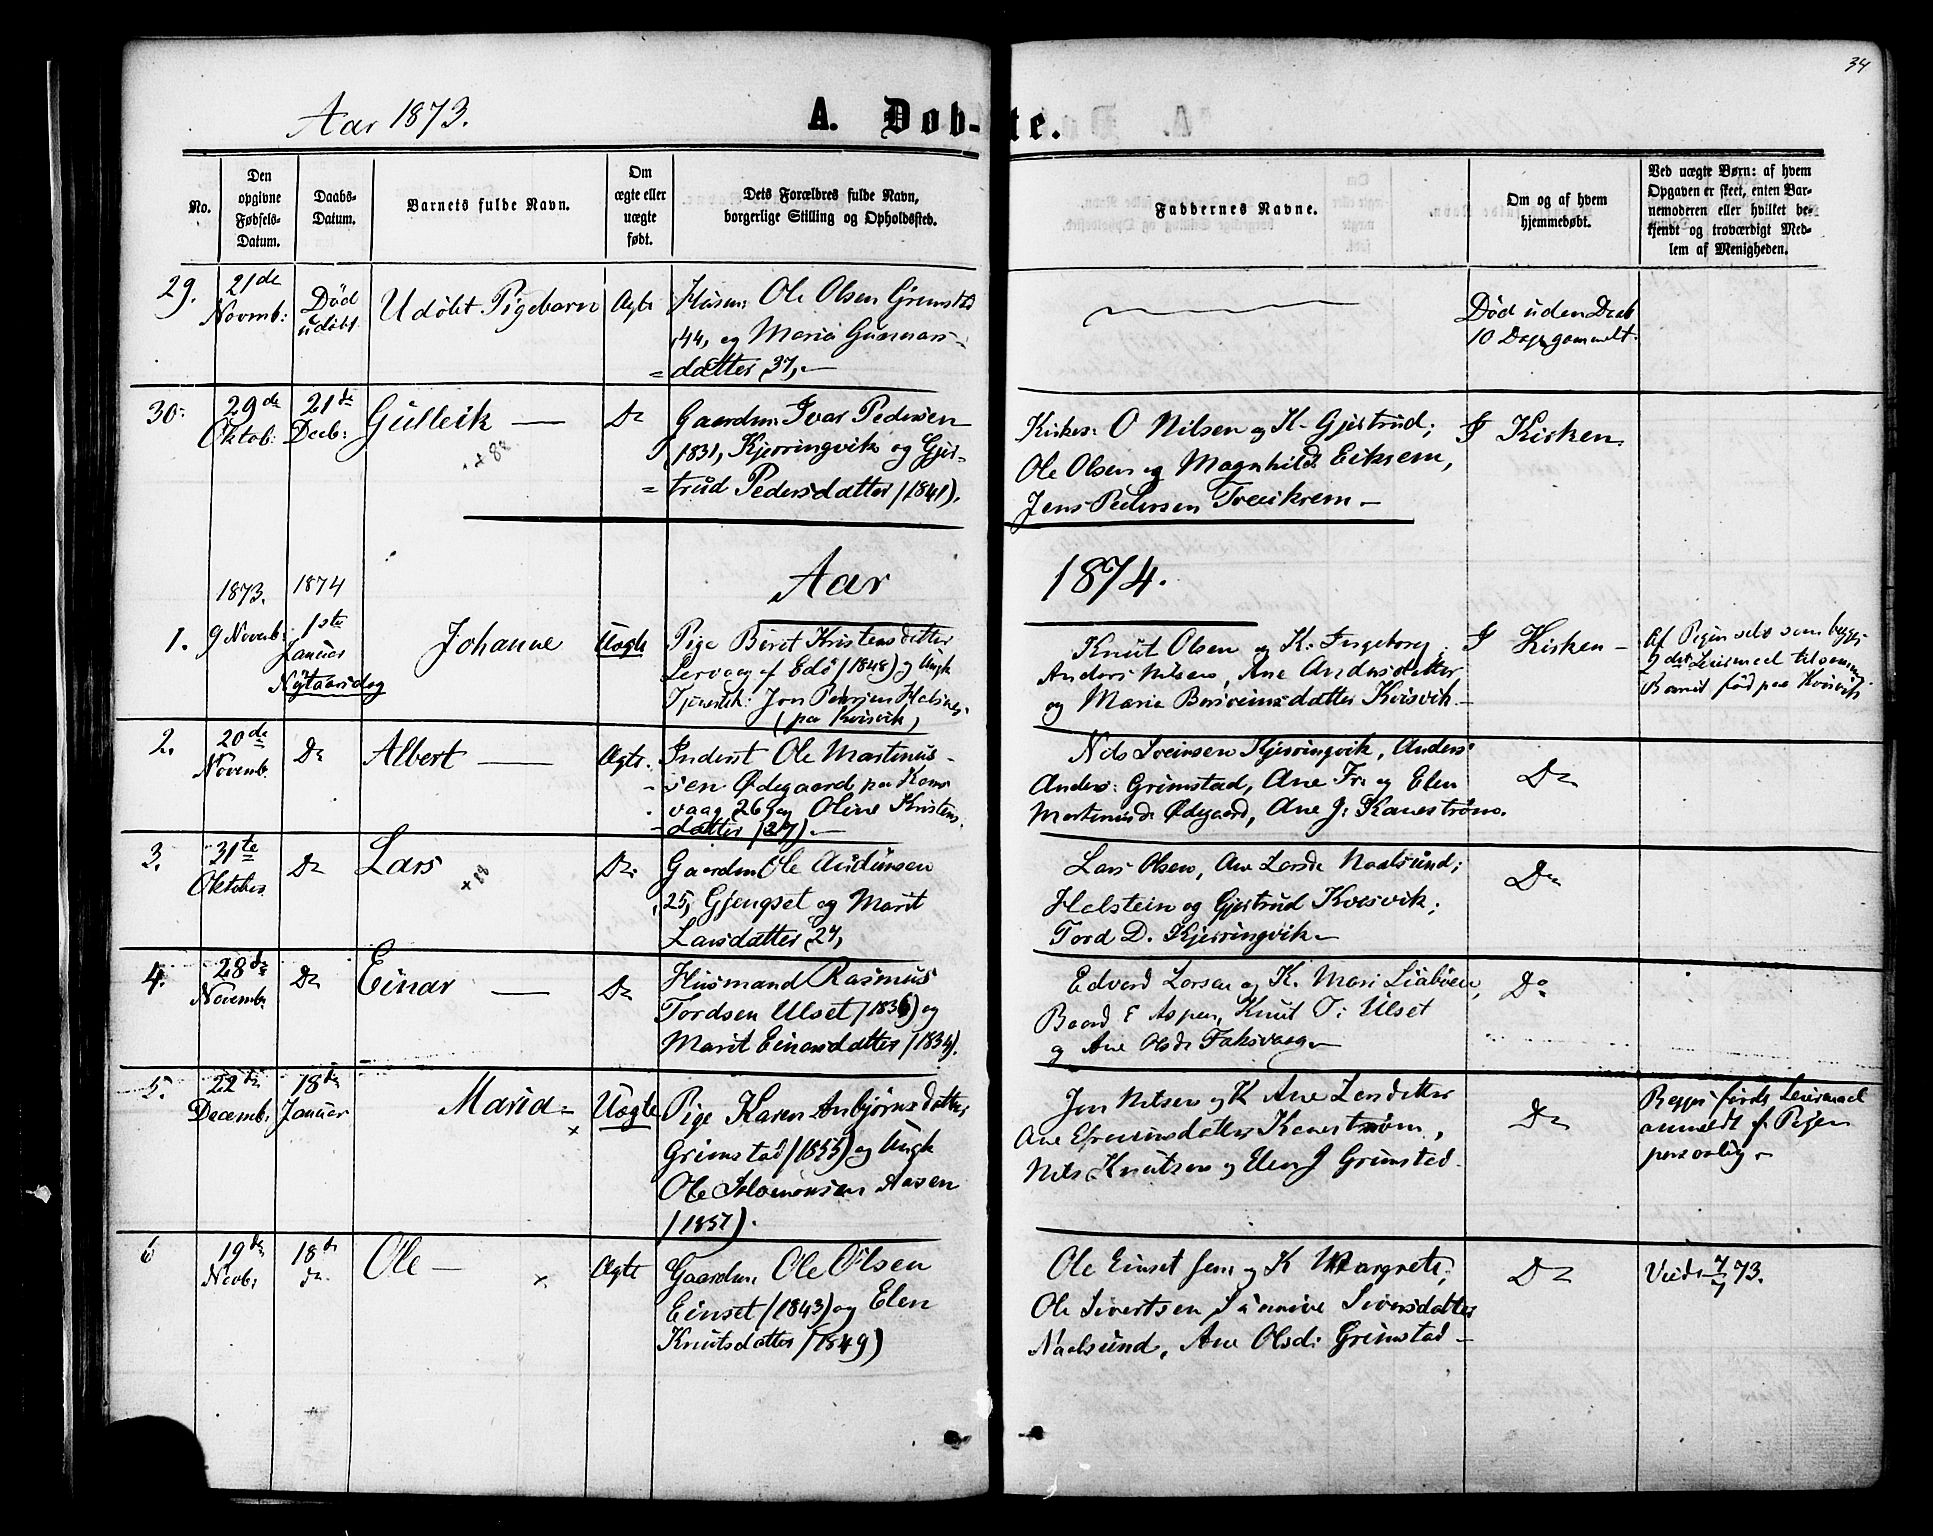 34
Aar 1873.
A. Døb-te.
No.
Den opgivne Fødsels-Datum.
Daabs-Datum.
Barnets fulde Navn.
Om ægte eller uægte født.
Dets Forældres fulde Navn, borgerlige Stilling og Opholdssted.
Faddernes Navne.
Om og af hvem hjemmedøbt.
Ved uægte Børn: af hvem Opgaven er skeet, enten Barnemoderen eller hvilket bekjendt og troværdigt Medlem af Menigheden.
29.
21de Novmb:
Død udøbt.
Udøbt Pigebarn
Ægte
Husm: Ole Olsen Grimstad
44, og Maria Gunnars-
=datter 37,-
Død uden Daab
10 Dage gammelt.
30.
29de Oktob:
21de Decb:
Gulleik —
Do
Gaardm. Ivar Pedersen
(1831, Kjørringvik og Gjer-
=trud Pedersdatter (1841).
Kirkes: O Nilsen og K. Gjertrud;
Ole Olsen og Magnhild Eikrem,
Jens Pedersen Tveeikrem -
I Kirken
Aar 1874.
1873.
1874
1.
9 Novemb:
1ste Januar
Nytaarsdag
Johanne
Uægte
Pige Beret Kristensdatter
(1848) og Ungk
Tjenestek: Jon Pedersen
(paa Kvisvik)
Knut Olsen og K. Ingeborg;
Anders Nilsen, Ane Andersdatter
og Marie Kvisvik -
I Kirken -
Af Pigen selv som begges
2det Leiermaal tilsammen
Barnet født paa Kvisvik
2.
20de Novemb.
Do
Albert —
Ægte.
Inderst Ole Martinus-
sen Ødegaard paa
vaag 26, og Oline Kristens-
datter (27). -
Nils Sveinsen Kjørringvik, Anders
Anders: Grimstad, Ane Fr. og Elen
Martinusd: Ødegaard, Ane J: Kanestrøm.
Do
3.
31te Oktober
Do
Lars
+ 88
Do.
Gaardm Ole Audunsen
25, Gjengset og Marit
Larsdatter 27,
Lars Olsen, Ane Larsdr Naalsund;
Halstein og Gjertrud Kvisvik;
Tord D. Kjørringvik -
Do
4.
28de Novembr.
Do
Einar —
Do
Husmand Rasmus
Tordsen Ulset (1836) og
Marit Einarsdatter (1834).
Edvard Larsen og K. Mari Liabøen,
Baard E Aspen, Knut T: Ulset
og Ane Olsdr Faksvaag -
Do
5.
22de Decemb.
18de Januar
Maria -
Uægte
Pige Karen Anbjørnsdatter
Grimstad (1855) og Ungk
Ole Salomonsen Aasen
(1857).
Jon Nilsen og K Ane
Ane Efraimsdatter Kanestrøm,
Nils Knutsen og Elen J Grimstad.
Do
Begges første Leiermaal
anmeldt af Pigen
personlig -
6
19de Novb.
18de do.
Ole —
Ægte
Gaardm. Ole Olsen
Einset (1843) og Elen
Knutsdatter (1849)
Ole Einset sen: og K Margrete;
Ole Sivertsen, Sivertsdatter
Naalsund, Ane Olsd: Grimstad -
Do
Viede 7/7 73.